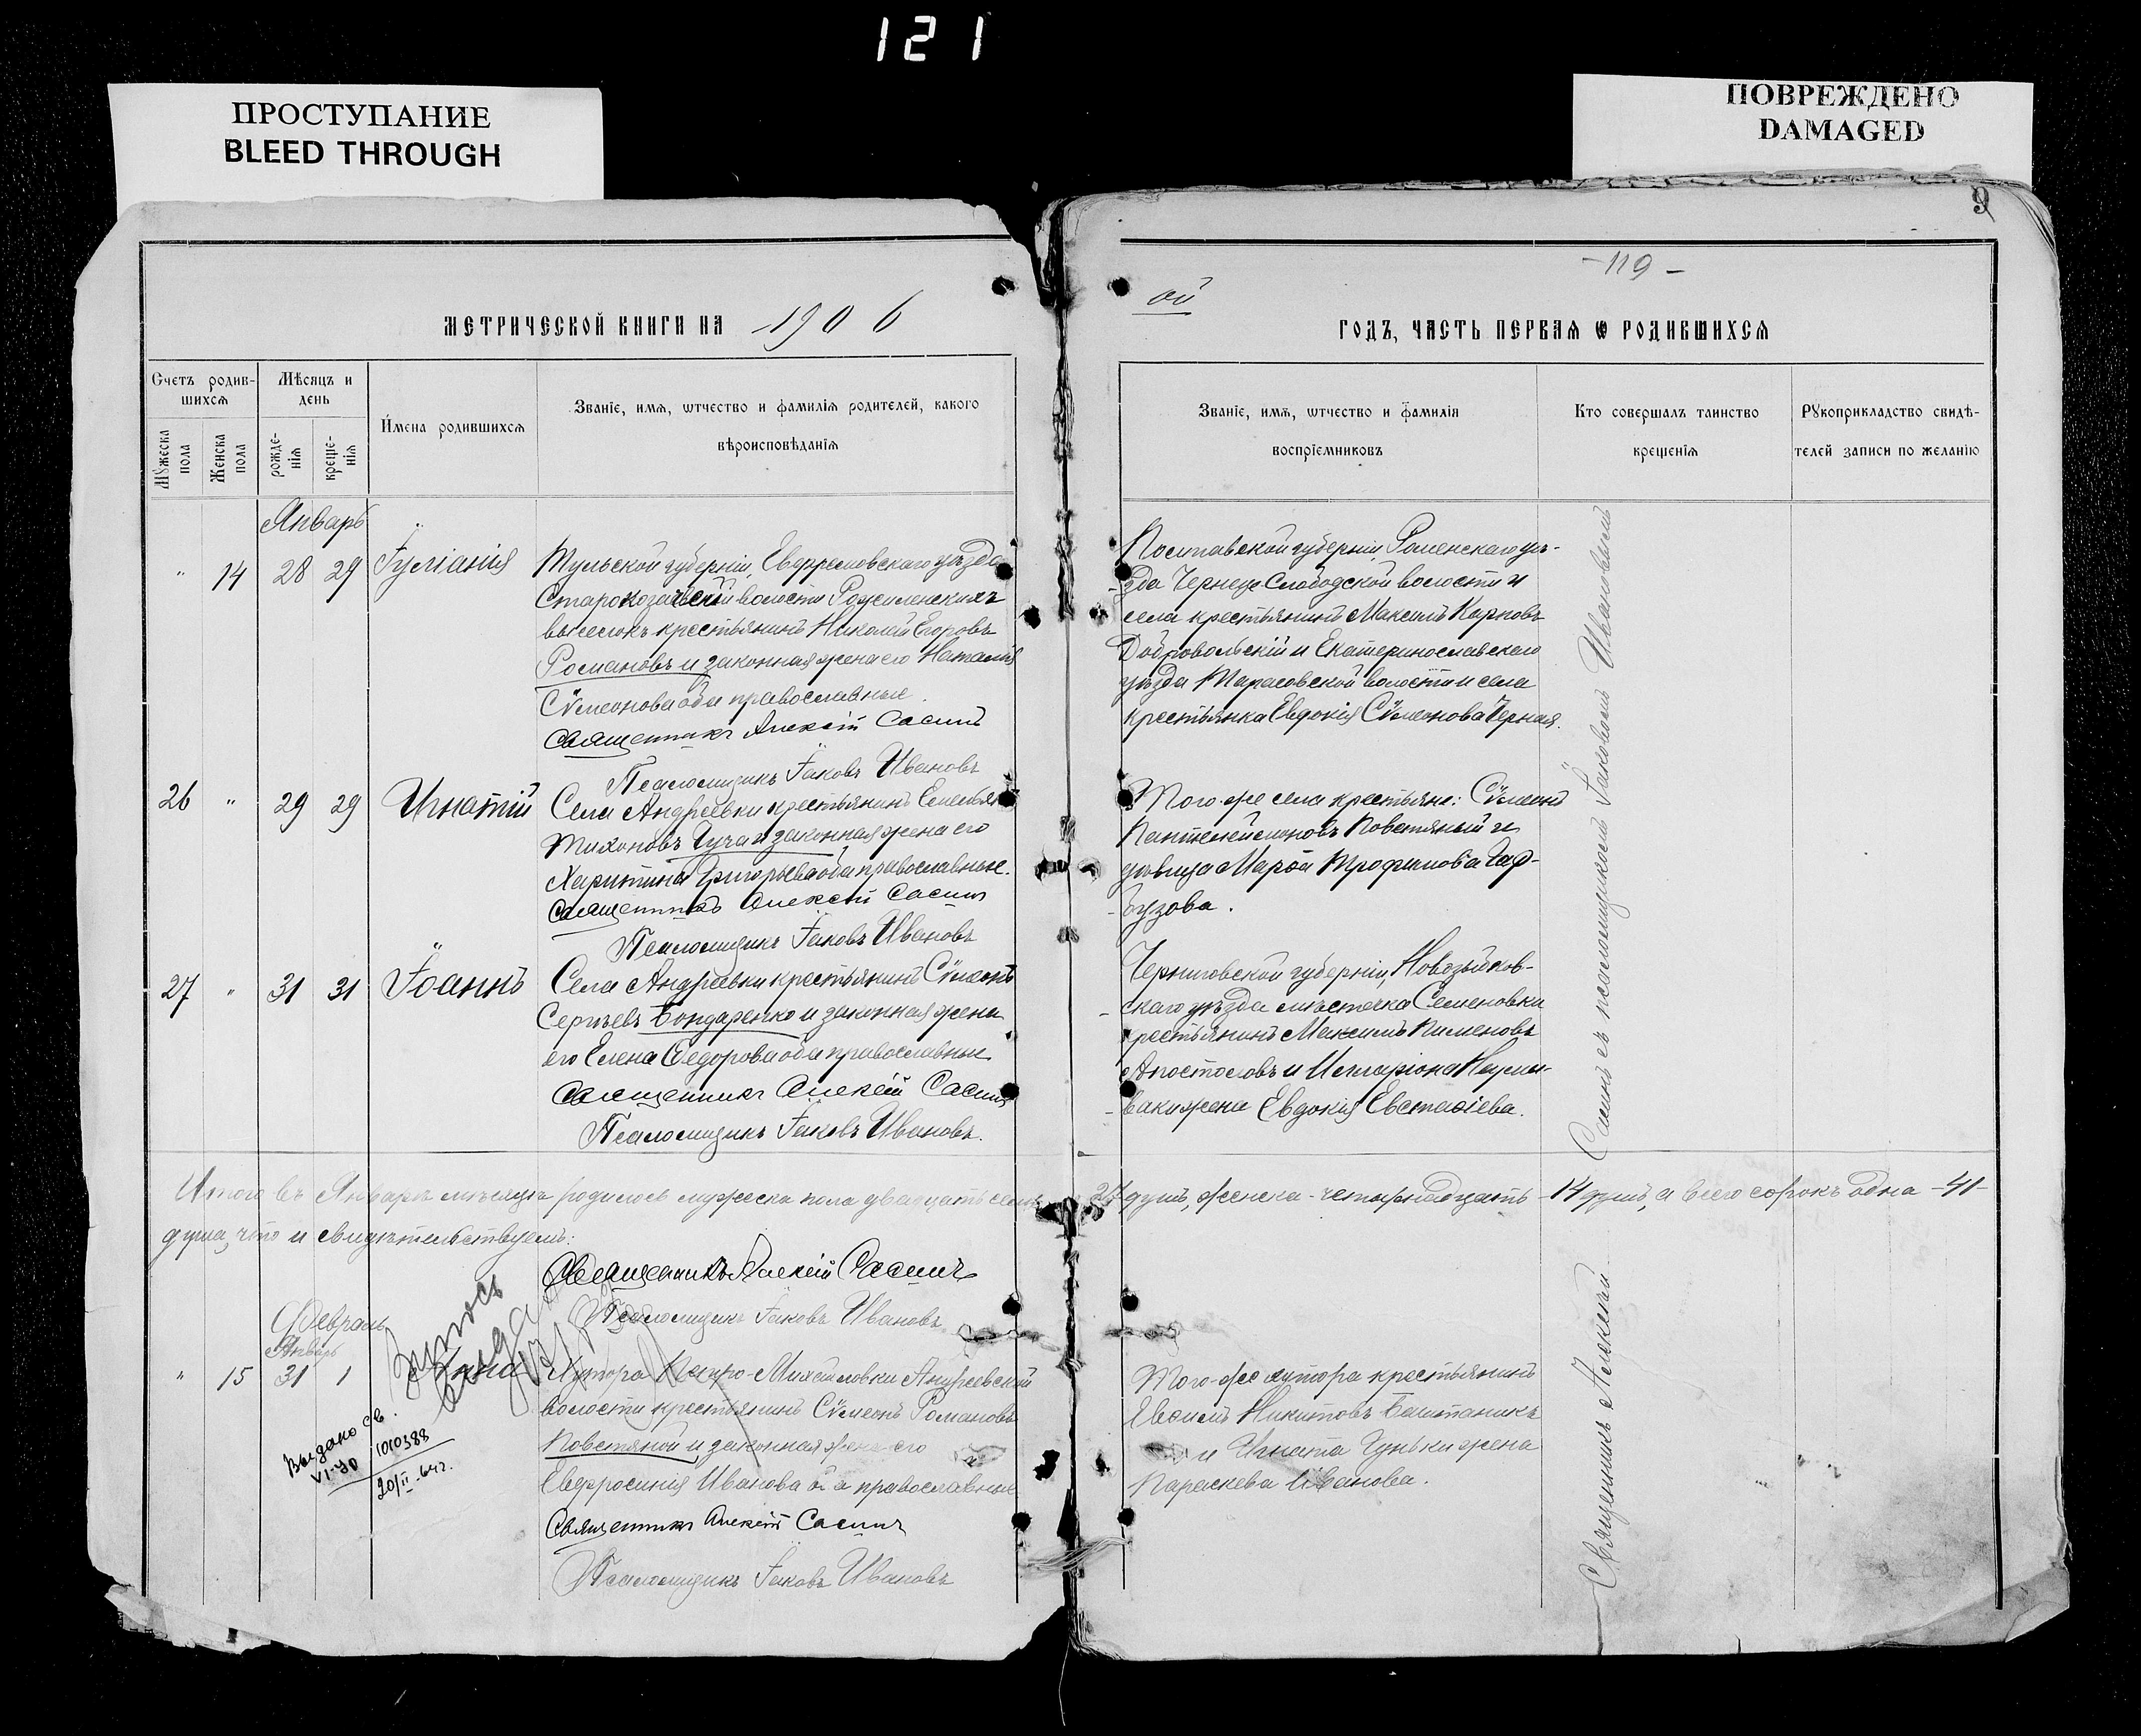 121
ПРОСТУПАНИЕ
BLEED THROUGH
ПОВРЕЖДЕНО
DAMAGED
9
-119-
МЕТРИЧЕСКОЙ КНИГИ НА 1906
ой
ГОДЪ, ЧАСТЬ ПЕРВАЯ Ѡ РОДИВШИХСѦ
Счетъ родив-
шихсѧ
Мѣсяцъ и
день
Мужеска
пола
Женска
пола
рожде-
нія
креще-
нія
Имена родившихсѧ
Званіе, имѧ, ѡтчество и фамилія родителей, какого
вѣроисповѣданіѧ
Званіе, имѧ, ѡтчество и фамилія
воспріемниковъ
Кто совершалъ таинство
крещенія
Рукоприкладство свидѣ-
телей записи по желанію
Январь
" 14 28 29 Іуліанія
Тульской губерніи, Ефремовскаго уѣзда
Староказачьей волости
выселокъ крестьянинъ Николай Егоровъ
Романовъ и законная жена его Наталія
Сѵмеонова оба православные.
Священникъ Алексій Сасинъ
Псаломщикъ Іаковъ Ивановъ
Полтавской губерніи, Роменскаго уѣ-
зда Чернече Слободской волости и
села крестьянинъ Максимъ Карповъ
Добровольскій и Екатеринославскаго
уѣзда Тарасовской волости и села
крестьянка Евдокія Сѵмеонова Черная.
26 " 29 29 Игнатій
Села Андреевки крестьянинъ Емельянъ
Тихоновъ Гуча и законная жена его
Харитина Григорьева оба православные.
Священникъ Алексій Сасинъ
Псаломщикъ Іаковъ Ивановъ
Того-же села крестьяне: Сѵмеонъ
Пантелеймоновъ Повстяный и
дѣвица Марѳа Трофимова Гар-
бузова.
27 " 31 31 Іоаннъ
Села Андреевки крестьянинъ Сѵмеонъ
Сергѣевъ Бондаренко и законная жена
его Елена Ѳедорова оба православные
Священникъ Алексій Сасинъ
Псаломщикъ Іаковъ Ивановъ.
Черниговской губерніи, Новозыбков-
скаго уѣзда мѣстечка Семеновки
крестьянинъ Максимъ Пименовъ
Апостоловъ и Илларіона Наума-
ваки жена Евдокія Евстаѳіева.
Итого въ Январѣ мѣсяцѣ родилось мужеска пола двадцать семь 27 душъ, женска - четырнадцать - 14 душъ, а всего сорокъ одна - 41 -
душа, что и свидѣтельствуемъ:
Священникъ Алексій Сасинъ
Псаломщикъ Іаковъ Ивановъ
Февраль
Январь
" 15 31 1 Анна
Хутора Петро-Михайловки Андреевской
волости крестьянинъ Сѵмеонъ Романовъ
Повстяной и законная жена его
Евфросинія Иванова оба православные
Священникъ Алексій Сасинъ
Псаломщикъ Іаковъ Ивановъ
Того-же хутора крестьянинъ
Евѳимъ Никитовъ Баштаникъ
и Игната Гуньки жена
Параскева Иванова.
Выдано св.
VI-ЯР
1010388
20/II-64г.
Священникъ Алексій Сасинъ съ псаломщикомъ Іаковомъ Ивановымъ